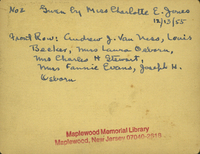 No2 Given by Miss Charlotte E. Jones
12/13/55
Rear Row: Andrew J. Van Ness, Louis
Becker, Mrs Laura Osborn,
Mrs Charles H Stewart,
Mrs Fannie Evans, Joseph H.
Osborn
Maplewood Memorial Library
Maplewood, New Jersey 07040-2618